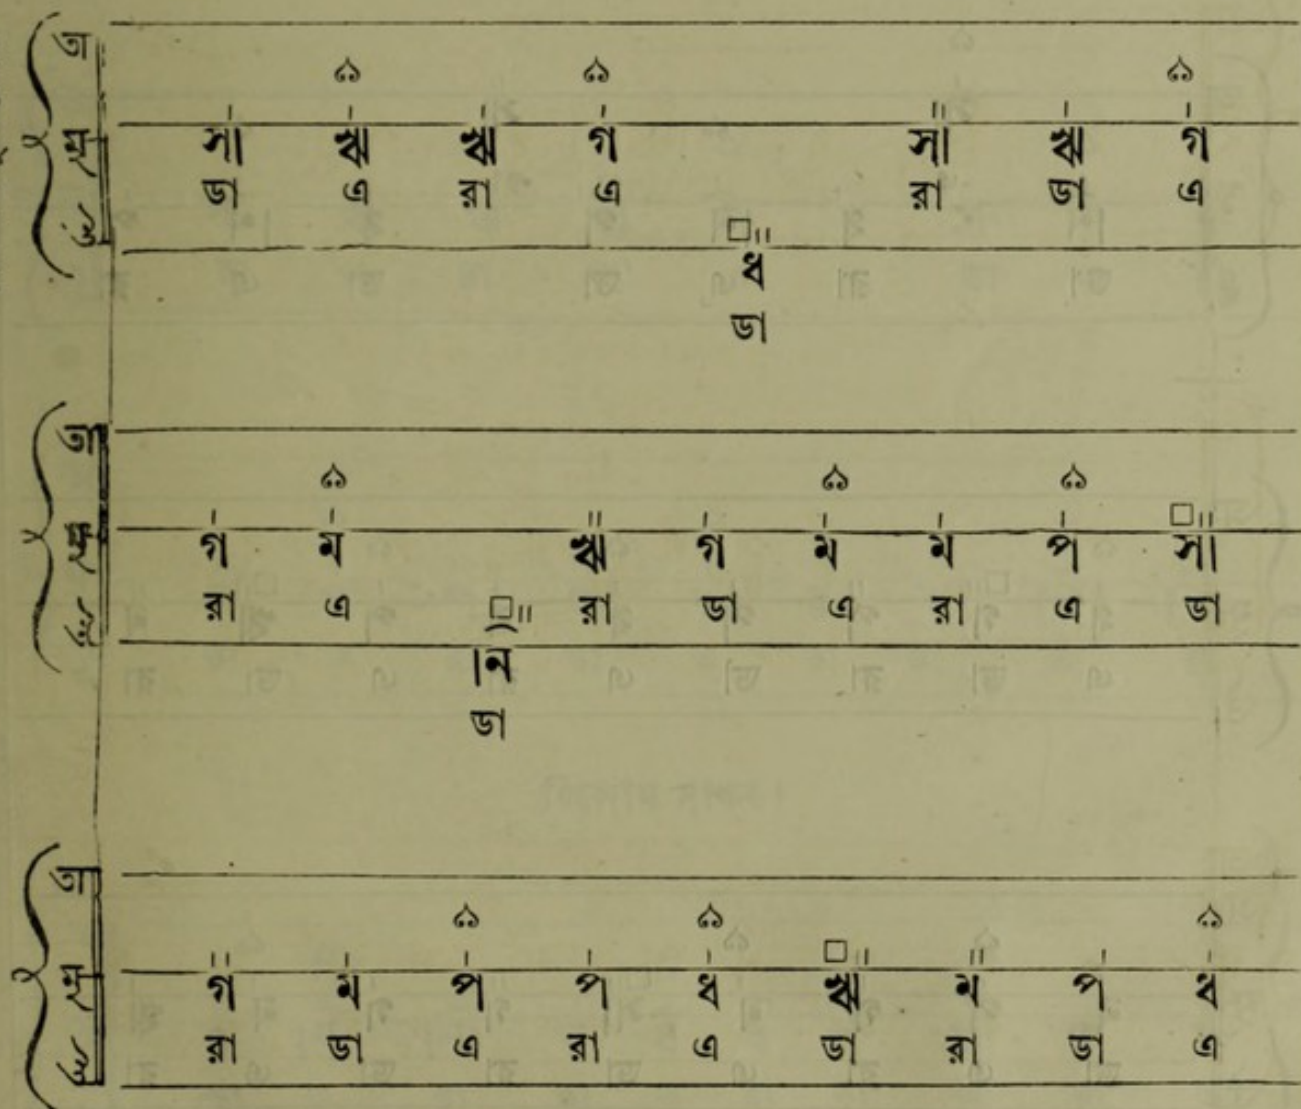 সা ঋ ঋ গ সা ঋ গ
ডা এ রা এ রা ডা এ
ধ
ডা
গ ম ঋ গ ম ম প সা
রা এ রা ডা এ রা এ ডা
নি
ডা
গ ম প প ধ ঋ ম প ধ
রা ডা এ রা এ ডা রা ডা এ